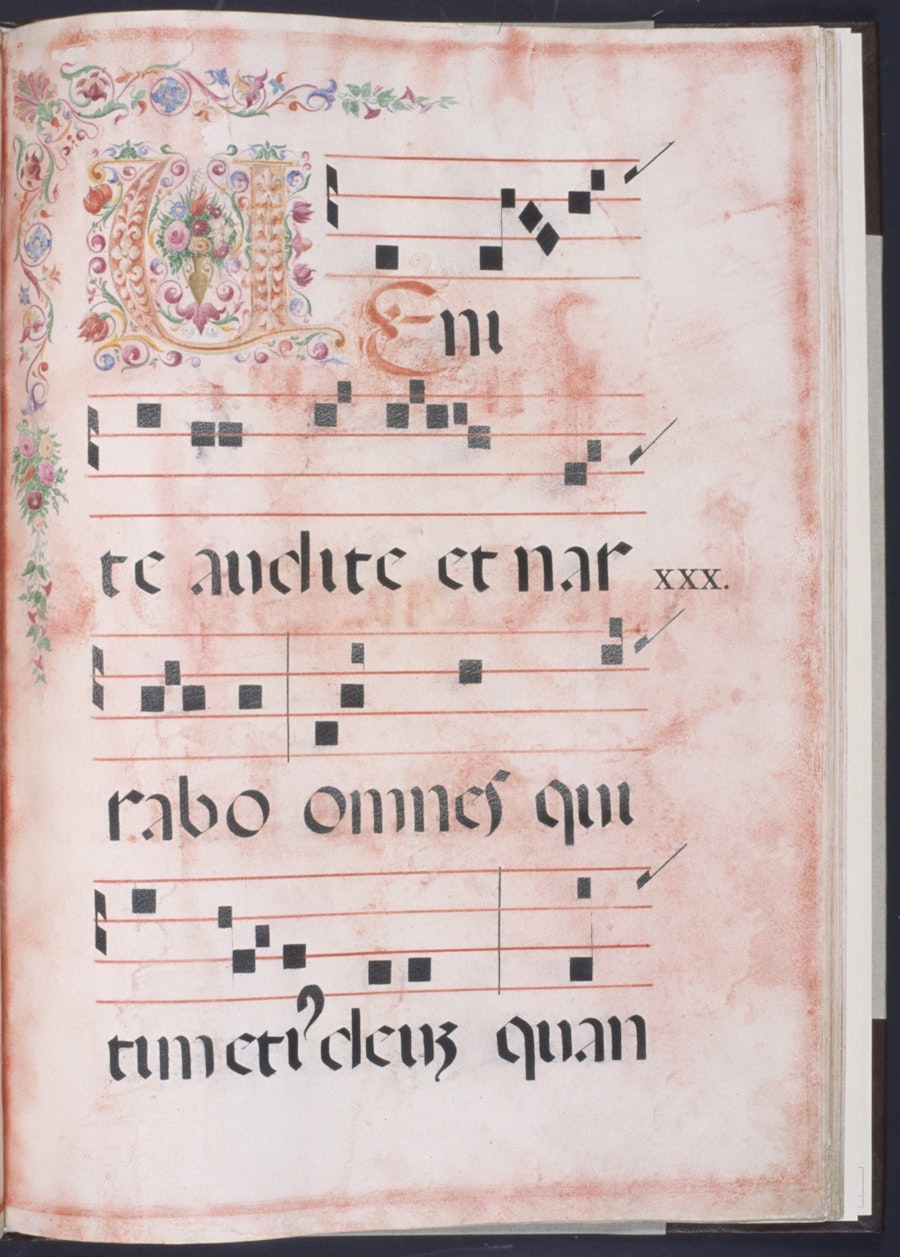 VEni
te audite et nar
xxx.
rabo omnes qui
timeti⁹ deuʒ quan